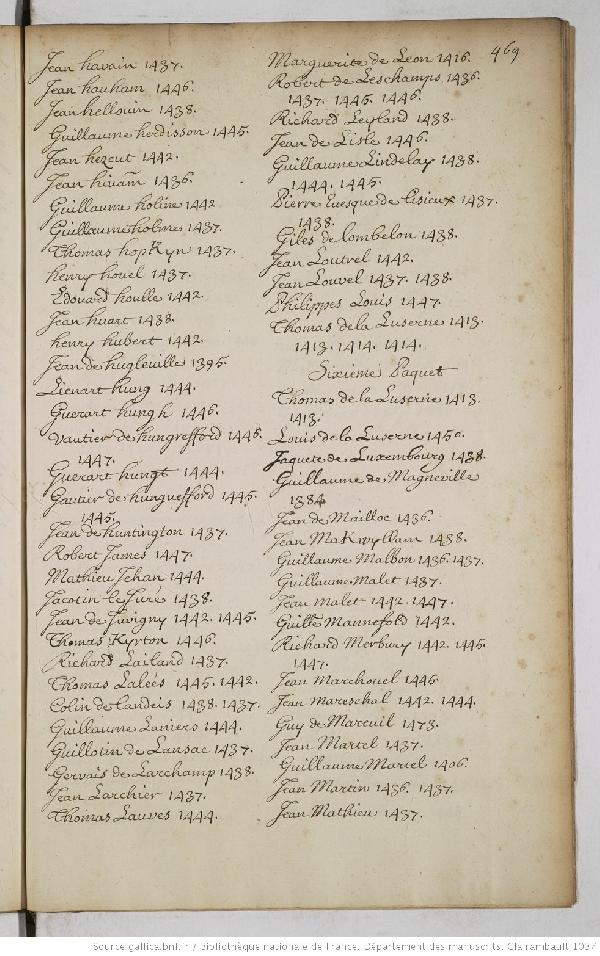 469
Jean havain 1437.
Jean hauham 1446.
Jean hellouin 1438.
Guillaume herdisson 1445.
Jean hezeut 1442.
Jean hiram 1436.
Guillaume holine 1442
Guillaume holme 1437.
Thomas hopkyn 1437.
henry houel 1437.
Edouard houlle 1442.
Jean huart 1438.
henry hubert 1442.
Jean de hugleuille 1395.
Lienart hung 1444.
Guerart hungh 1446.
Vautier de hungrefford 1445.
1447.
Guerart hungt 1444.
Gautier de hunguefford 1445.
1445.
Jean de huntington 1437.
Robert James 1447.
Mathieu Jehan 1444.
Jacotin le Juré 1438.
Jean de Juvigny 1442. 1445.
Thomas Kyrton 1446.
Richard Lailand 1437.
Thomas Laleés 1445. 1442.
Colin de landeis 1438. 1437.
Guillaume Laniers 1444.
Guillotin de Lansac 1437.
Gervais de Larchamp 1438.
Jean Larchier 1437.
Thomas Lauves 1444.
Marguerite de Leon 1416.
Robert de Leschamps 1436.
1437. 1445. 1446.
Richard Leyland 1438.
Jean de Lisle 1446.
Guillaume Lindelay 1438.
1444. 1445.
Pierre Euesque de Lisieux 1437.
1438.
Giles de lombelon 1438.
Jean Loutrel 1442.
Jean Louvel 1437. 1438.
Philippes Louis 1447.
Thomas de la Luserne 1413.
1413. 1414. 1414.
Sixiéme Paquet
Thomas de la Luserne 1413.
1413.
Louis de la Luserne 1450.
Jaquete de Luxembourg 1438.
Guillaume de Magneville
1384
Jean de Mailloc 1436.
Jean Makwyllam 1438.
Guillaume Malbon 1436. 1437.
Guillaume Malet 1437.
Jean malet 1442. 1447.
Guille Mannefold 1442.
Richard Merbury 1442. 1445.
1447.
Jean Marchouel 1445.
Jean Mareschal 1442. 1444.
Guy de Mareuil 1473.
Jean Martel 1437.
Guillaume Martel 1406.
Jean Martin 1436. 1437.
Jean Mathieu 1437.
Source gallica.bnf.fr / Bibliothèque nationale de France. Département des manuscrits. Clairambault 1037